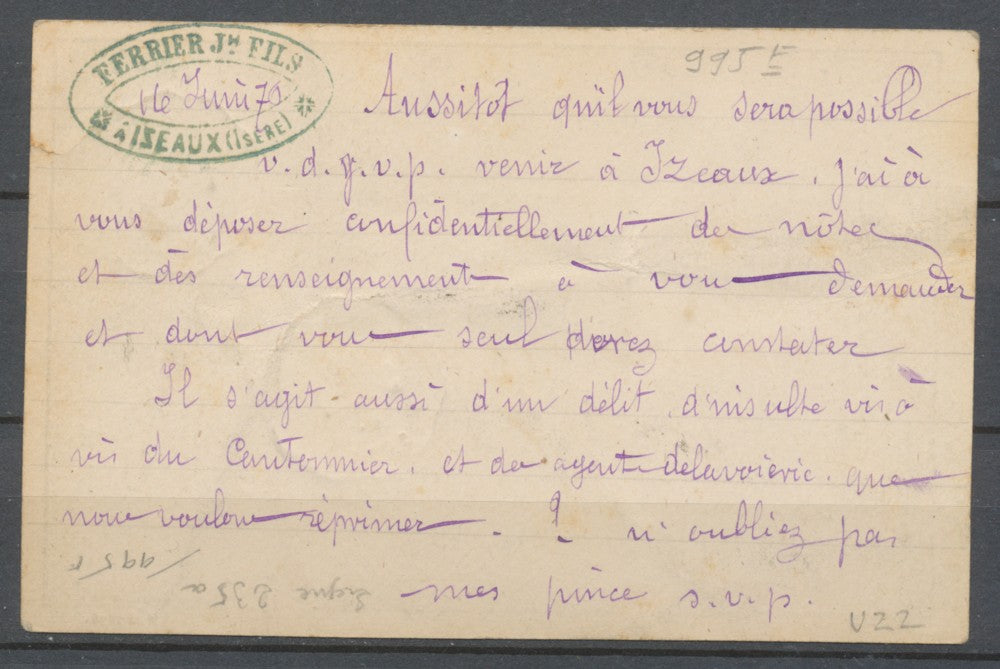 995 F
FERRIER Jn FILS
16 Juin 79
A IZEAUX (ISÈRE)
Aussitot qu'il vous sera possible
v. d. y. v. p. venir à Izeaux. J'ai à
vous déposer confidentiellement des nôtes
et dès renseignements à vous demander
et dont vous seul devez constater
Il s'agit aussi d'un délit d'insulte vis à
vis du Cantonnier. et des agents delavoierie. que
nous voulons réprimer. - ! n'oubliez pas
mes pince s.v.p.
995 F
235a
V22